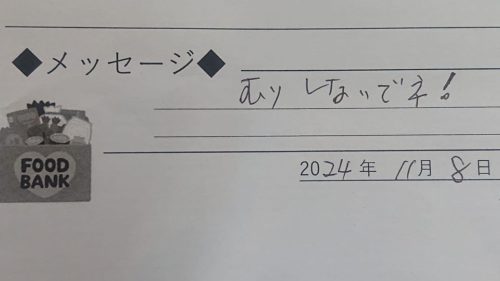 ◆メッセージ◆
むりしないでネ!
FOOD
BANK
2024年 11月 8日